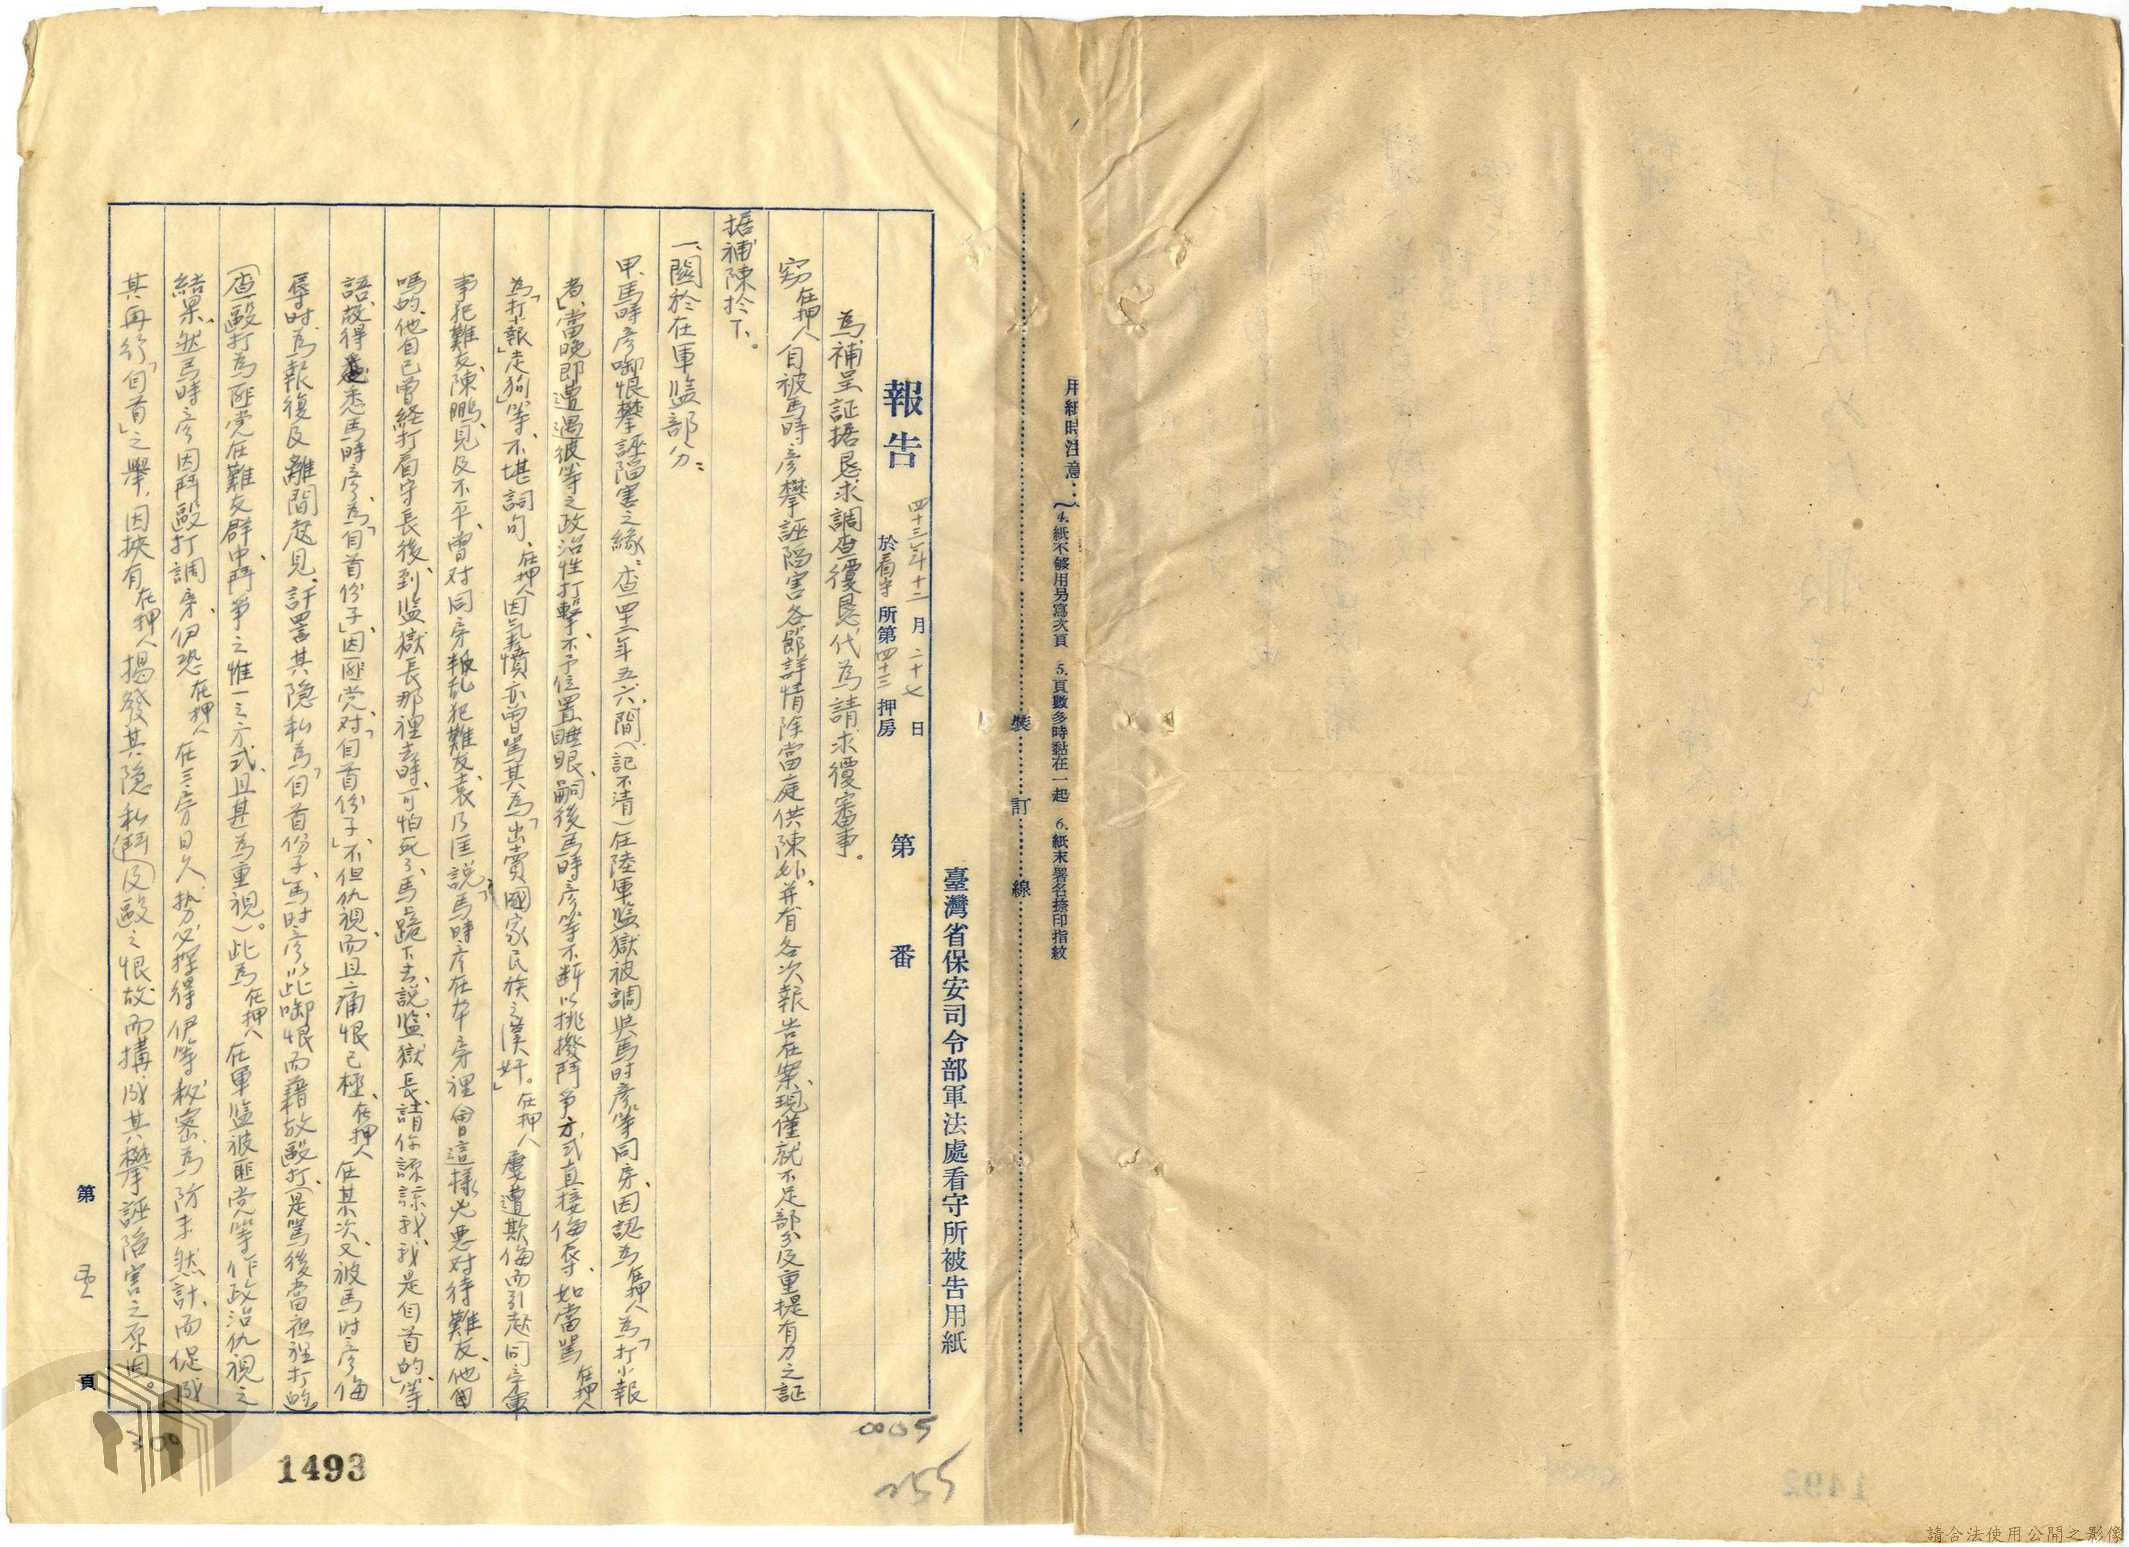 用紙時注意：4.紙不够用另寫次頁 5.頁數多時黏在一起 6.紙末署名捺印指紋
裝 訂 線
臺灣省保安司令部軍法處看守所被告用紙
報告 四十三年十二月二十七日 於看守所第四十三押房 第 番
為補呈証据恳求調查覆恳代為請求覆審事。
窃在押人自被馬時彥攀誣陷害各節詳情除當庭供陳外、并有各次報告在案、現僅就不足部分及重提有力之証
据補陳於下、
一、關於在軍監部分：
甲、馬時彥啣恨攀誣陷害之緣：查四十二年五六間（記不清）在陸軍監獄被調與馬时彥等同房、因認為在押人為「打小報
者」、當晚即遭遇彼等之政治性打擊、不予位置睡眠、嗣後馬時彥等不断以挑撥鬥爭方式直接侮辱、如當罵在押人
為「打小報」「走狗」等、不堪詞句、在押人因氣憤亦曾罵其為「出賣國家民族之漢奸。」在押人屢遭欺侮而引起同房軍
事犯難友陳鵬見及不平、曾对同房叛乱犯難友袁乃匡說：「馬時彥在本房裡會這樣兇惡对待難友、他自
嗎的、他自己曾経打看守長後、到監獄長那裡去時、可怕死了、馬上跪下去說、監獄長請你諒諒我、我是自首的」等
語、故得悉馬時彥為「自首份子」、因匪党对「自首份子」不但仇視、而且痛恨已極、在押人在某次、又被馬时彥侮
辱时、為報復及離間起見、訐罵其隐私為「自首份子」、馬时彥以此啣恨而藉故毆打（是罵後當夜裡打的）
（查毆打為匪党在難友群中鬥爭之惟一之方式、且甚為重視）。此為在押人在軍監被匪党等作政治仇視之
結果、然馬時彥因鬥毆打調房、伊恐在押人在三房日久、势必探得伊等秘密、為防未然計、而促成
其再行「自首」之舉、因挾有在押人揭發其隐私（鬥）及毆之恨、故而搆成其攀誣陷害之原因。
第 頁
0005
255
300
1493
1492
請合法使用公開之影像